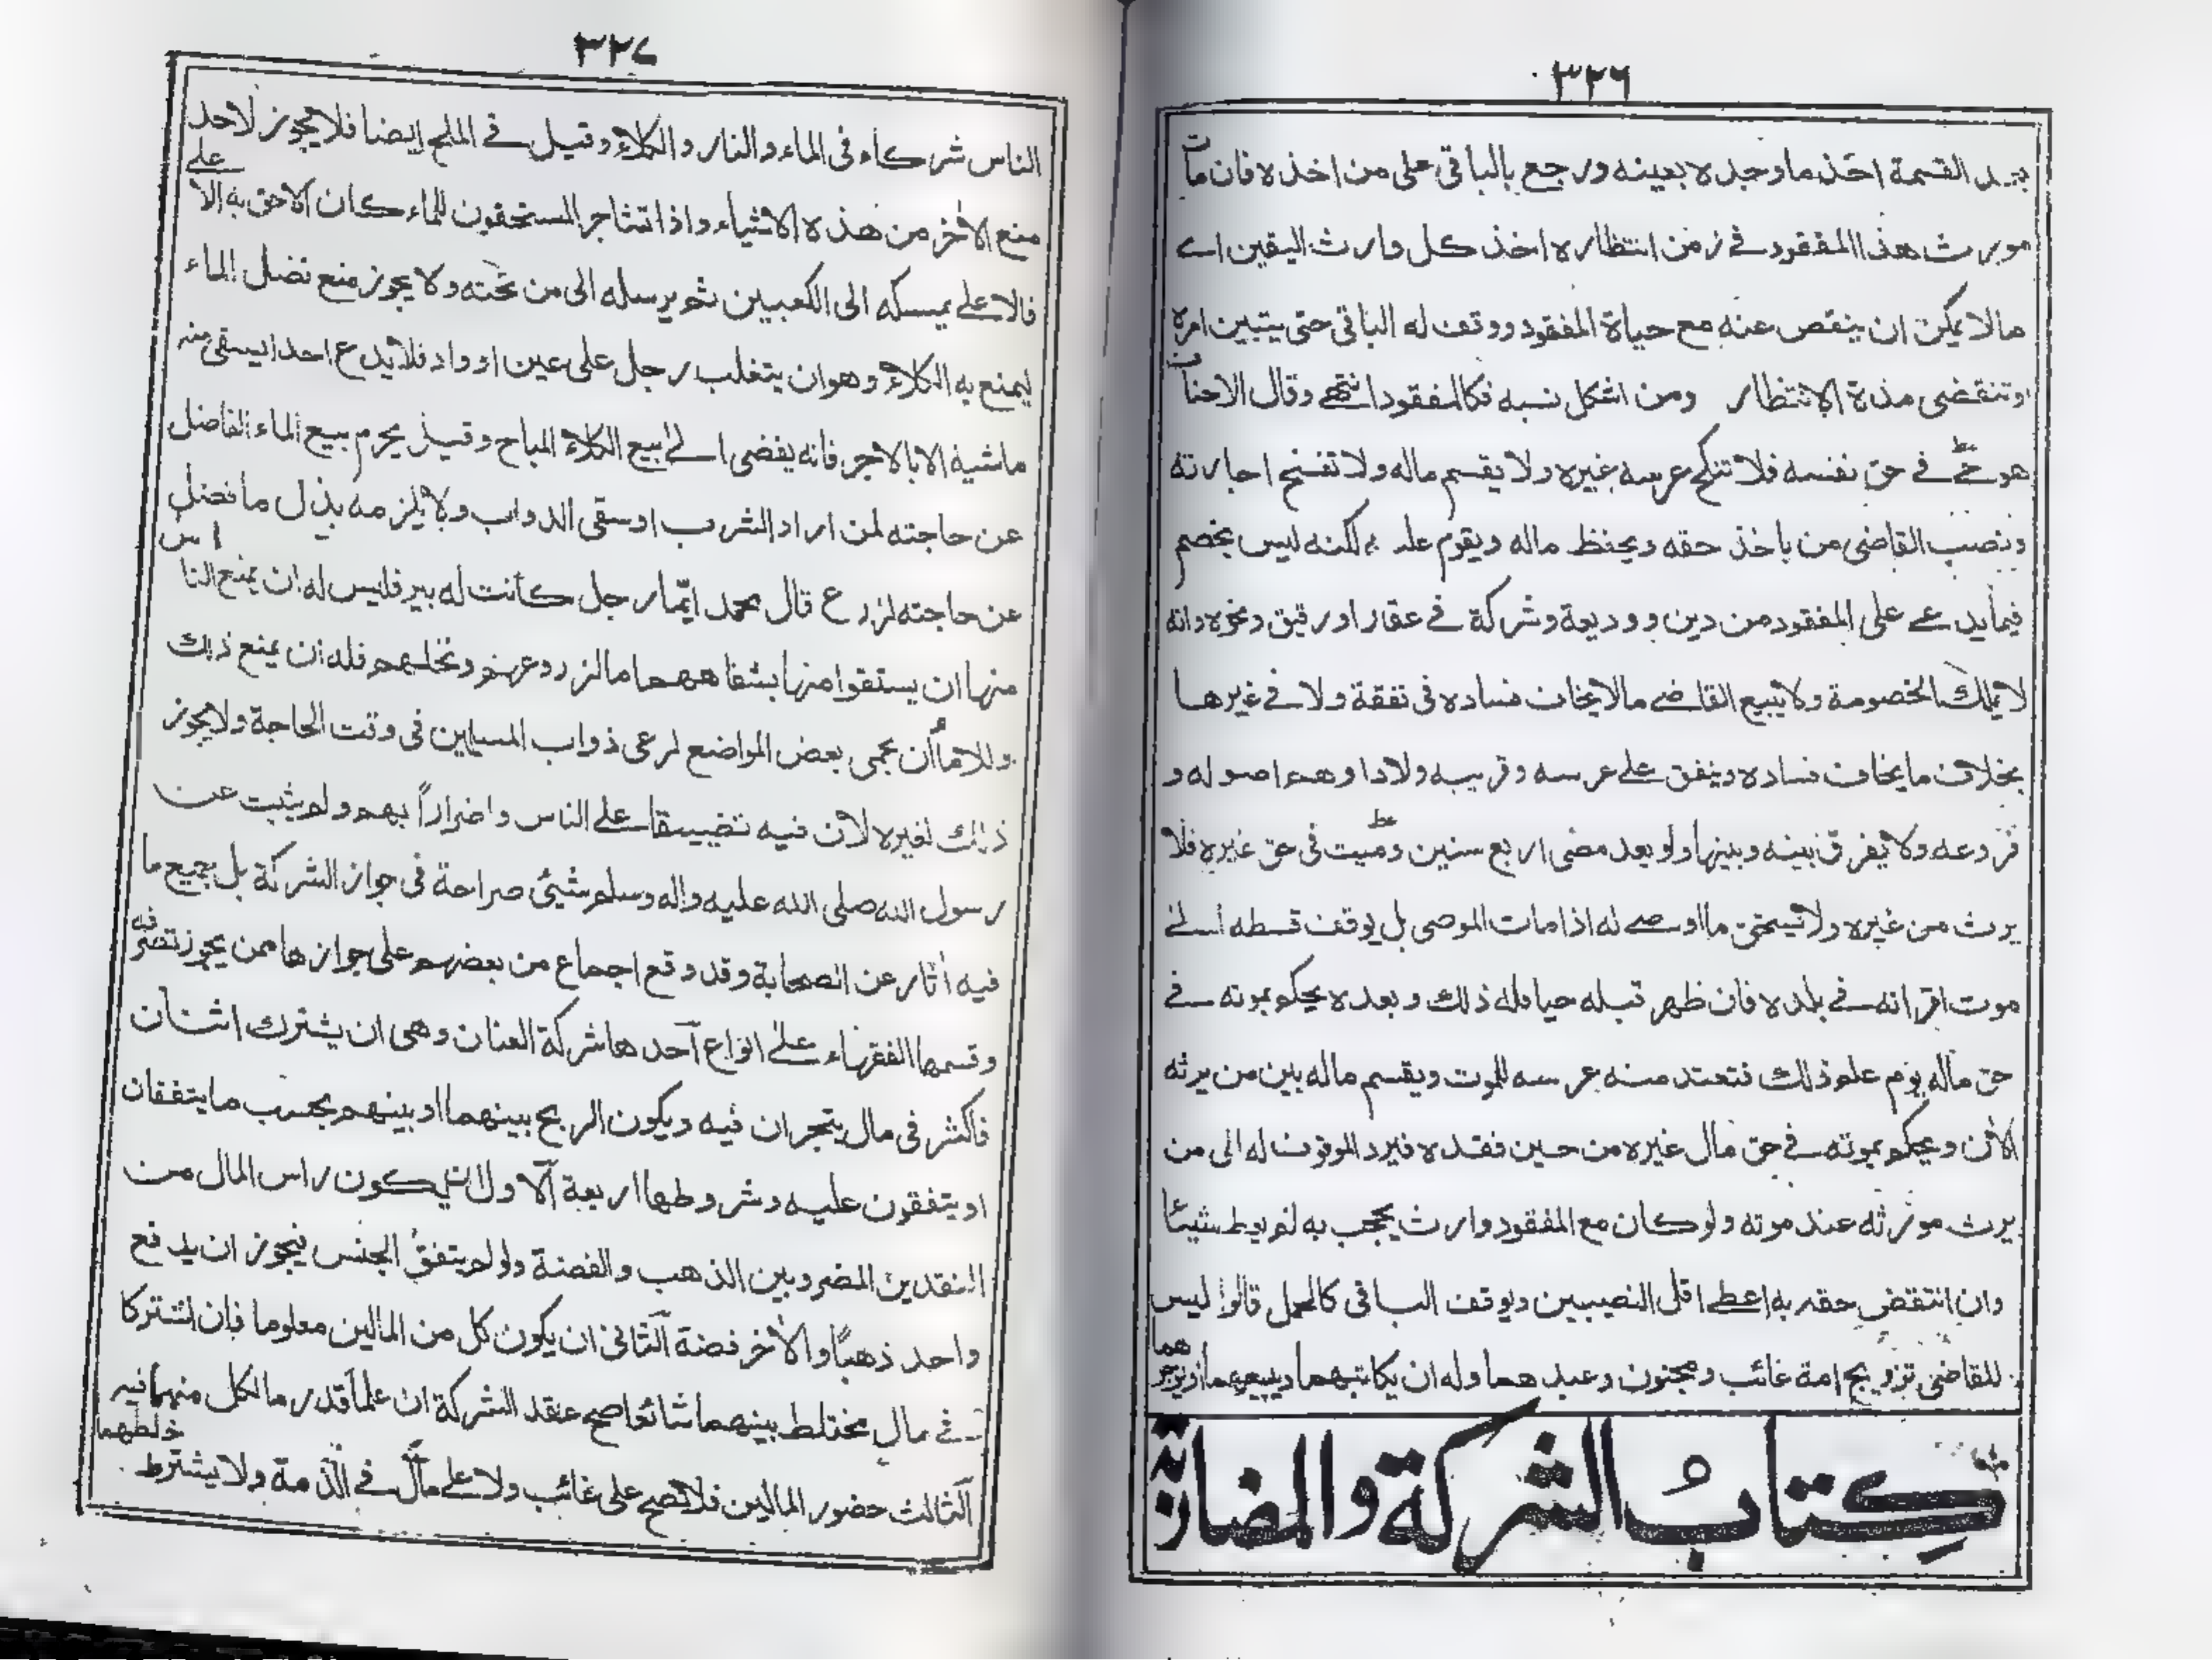 ٣٢٦
بعد القسمة اخذ ما وجده بعينه ورجع بالباقى على من اخذه فان مات
مورث هذا المفقود فے زمن انتظاره اخذ كل وارث اليقين اے
مالا يمكن ان ينقص عنه مع حياة المفقود ووقف له الباقى حتى يتبين امره
اوتنقضى مدة الانتظار ومن اشكل نسبه فكالمفقود انتهے وقال الاحناف
هو حے فے حق نفسه فلا تنكح عرسه غيره ولا يقسم ماله ولا تفسخ اجارته
ونصب القاضى من ياخذ حقه ويحفظ ماله ويقوم عليه لكنه ليس بخصم
فيما يدعے على المفقود من دين ووديعة وشركة فے عقار او رقيق ونحوه وانه
لا يملك الخصومة ولا يبيع القاضے مالا يخاف فساده فى نفقة ولا فے غيرها
بخلاف ما يخاف فساده وينفق علے عرسه وقريبه ولادا وهم اصوله و
فروعه ولا يفرق بينه وبينها ولو بعد مضى اربع سنين وميت فى حق غيره فلا
يرث من غيره ولا يستحق ما اوصے له اذا مات الموصى بل يوقف قسطه الے
موت اقرانه فے بلده فان ظهر قبله حيا فله ذلك وبعده يحكم بموته فے
حق ماله يوم علم ذلك فتعتد منه عرسه للموت ويقسم ماله بين من يرثه
الآن ويحكم بموته فے حق مال غيره من حين فقده فيرد الموقوف له الى من
يرث مورثه عند موته ولو كان مع المفقود وارث يحجب به لم يعط شيئا
وان انتقض حقه به اعطے اقل النصيبين ويوقف الباقى كالحمل قالوا ليس
للقاضى تزويج امة غائب ومجنون وعبدهما وله ان يكاتبهما ويبيعهما
كِتابُ الشركة والمضاربة
٣٢٧
الناس شركاء فى الماء والنار والكلاء وقيل فے الملح ايضا فلا يجوز لاحد
منع الآخر من هذه الاشياء واذا تشاجر المستحقون للماء كان الاحق به الاعلے
فالاعلے يمسكه الى الكعبين ثم يرسله الى من تحته ولا يجوز منع فضل الماء
ليمنع به الكلاء وهو ان يتغلب رجل على عين او واد فلا يدع احدا يسقى منه
ماشية الا بالاجر فانه يفضى الے بيع الكلاء المباح وقيل يحرم بيع الماء الفاضل
عن حاجته لمن اراد الشرب او سقى الدواب ولا يلزمه بذل ما فضل
عن حاجته لزرع قال محمد ايّما رجل كانت له بير فليس له ان يمنع الناس
منها ان يستقوا منها بشفاههم اما لزروعهم ونخلهم فله ان يمنع ذلك
وللامام ان يحمى بعض المواضع لرعى دواب المسلمين فى وقت الحاجة ولا يجوز
ذلك لغيره لان فيه تضييقا علے الناس واضراراً بهم ولم يثبت عن
رسول الله صلى الله عليه واله وسلم شيئ صراحة فى جواز الشركة بل جميع ما
فيه آثار عن الصحابة وقد وقع اجماع من بعضهم على جوازها ممن يجوز تصرفه
وقسمها الفقهاء علے انواع آحدها شركة العنان وهى ان يشترك اثنان
فاكثر فى مال يتجران فيه ويكون الربح بينهما او بينهم بحسب ما يتفقان
او يتفقون عليه وشروطها اربعة آلاول ان يكون راس المال من
النقدين المضروبين الذهب والفضة ولو لم يتفق الجنس فيجوز ان يدفع
واحد ذهبًا والآخر فضة آلثانى ان يكون كل من المالين معلوما فان اشتركا
فے مال مختلط بينهما شائعا صح عقد الشركة ان علما قدر ما لكل منهما فيه
آلثالث حضور المالين فلا تصح على غائب ولا علے مال فے الذمة ولا يشترط خلطهما